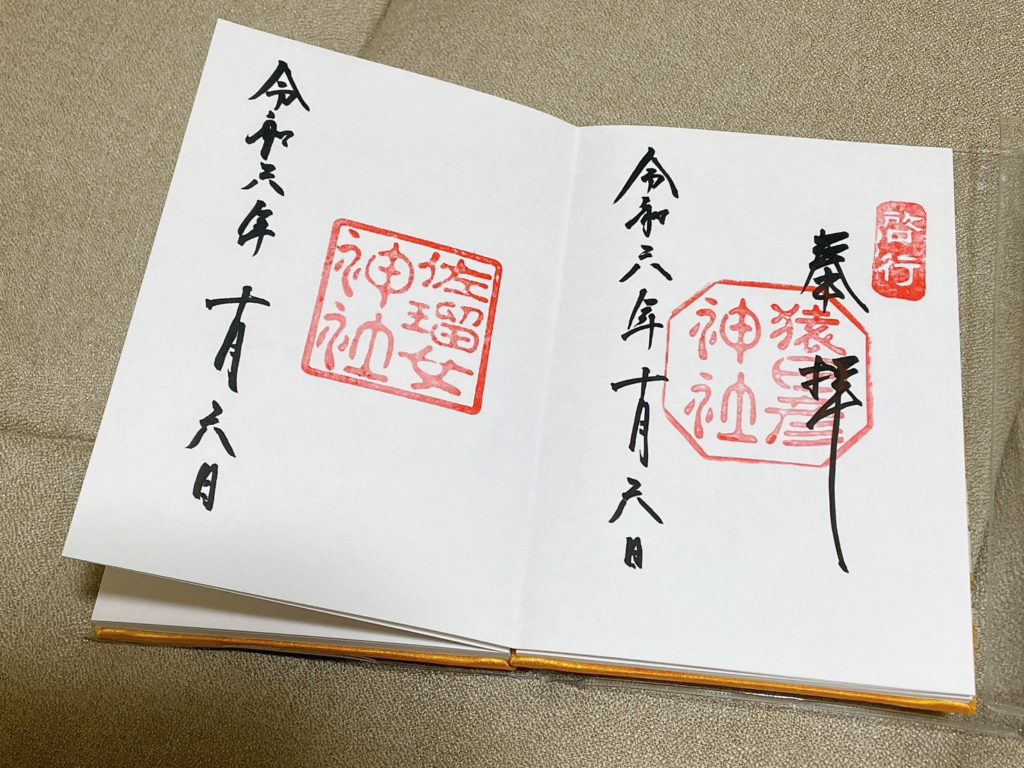 啓行
奉拝
猿田彦
神社
令和六年十月六日
佐瑠女
神社
令和六年十月六日